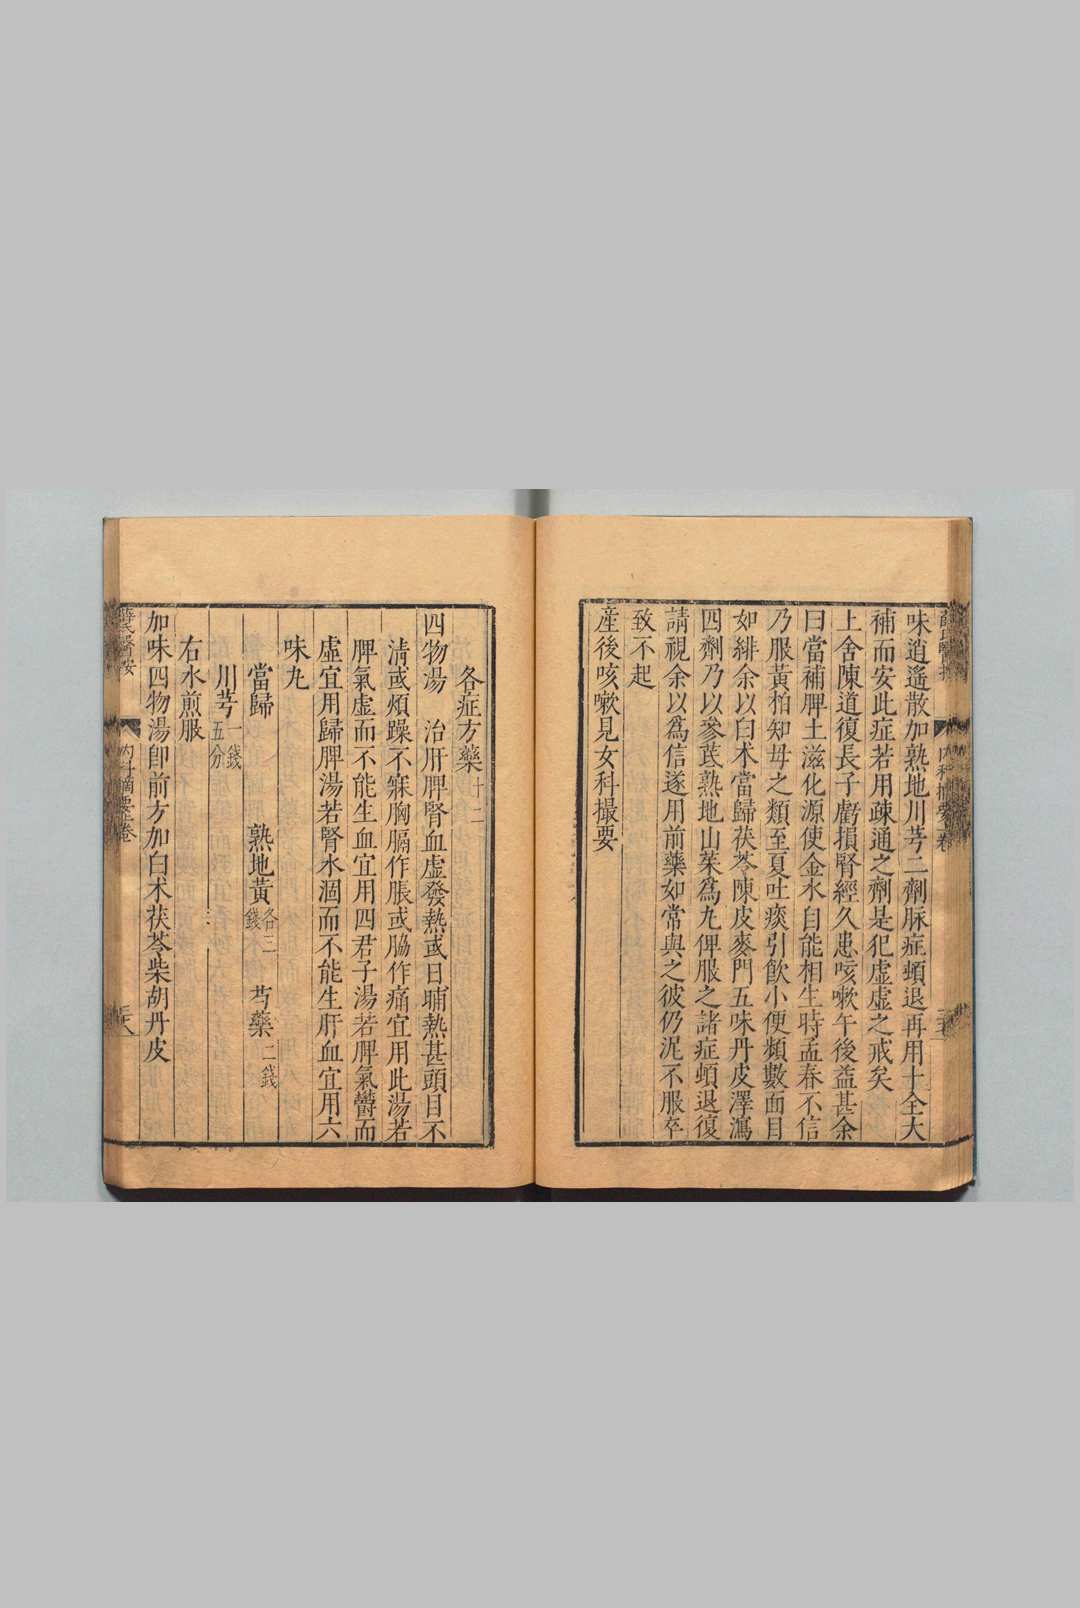 味逍遙散加熟地川芎二劑脉症頓退再用十全大
補而安此症若用疎通之劑是犯虛虛之戒矣
上舍陳道復長子虧損腎經久患咳嗽午後益甚余
曰當補脾土滋化源使金水自能相生時孟春不信
乃服黃柏知母之類至夏吐痰引飲小便頻數面目
如緋余以白术當歸茯苓陳皮麥門五味丹皮澤瀉
四劑乃以參芪熟地山茱為丸俾服之諸症頓退復
請視余以為信遂用前藥如常與之彼仍泥不服卒
致不起
産後咳嗽見女科撮要
各症方藥十二
四物湯　治肝脾腎血虛發熱或日晡熱甚頭目不
清或煩躁不寐胸膈作脹或脇作痛宜用此湯若
脾氣虛而不能生血宜用四君子湯若脾氣鬱而
虛宜用歸脾湯若腎水涸而不能生肝血宜用六
味丸
當歸　熟地黃各三錢　芍藥二錢
川芎一錢五分
右水煎服
加味四物湯卽前方加白术茯苓柴胡丹皮
薛氏醫按　內科摘要上卷　三十八